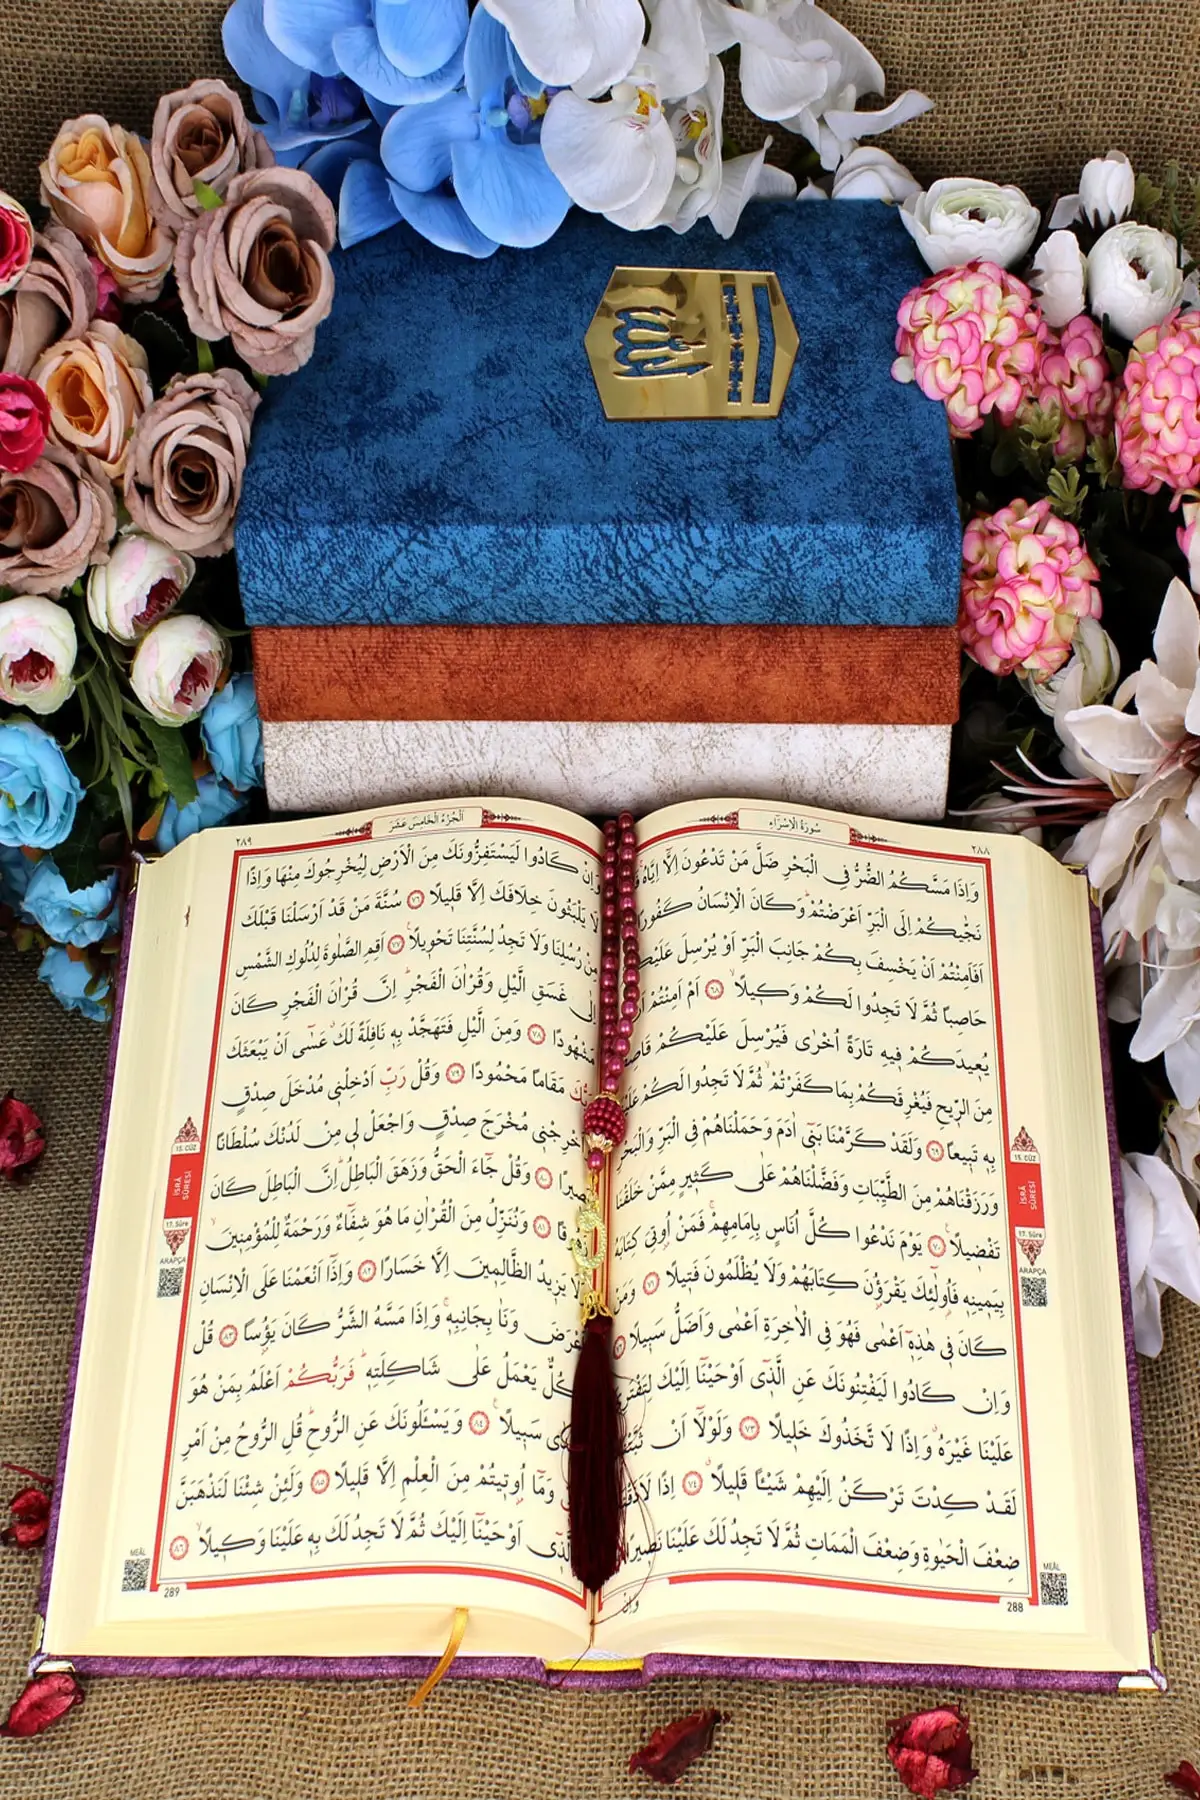 الله
٢٨٨
سُورَةُ الْاِسْرَاءِ
وَاِذَا مَسَّكُمُ الضُّرُّ فِي الْبَحْرِ ضَلَّ مَنْ تَدْعُونَ اِلَّٓا اِيَّاهُۚ
نَجّٰيكُمْ اِلَى الْبَرِّ اَعْرَضْتُمْۜ وَكَانَ الْاِنْسَانُ كَفُورًا
اَفَاَمِنْتُمْ اَنْ يَخْسِفَ بِكُمْ جَانِبَ الْبَرِّ اَوْ يُرْسِلَ عَلَيْكُمْ
حَاصِبًا ثُمَّ لَا تَجِدُوا لَكُمْ وَكٖيلًاۙ ٦٨ اَمْ اَمِنْتُمْ اَنْ
يُعٖيدَكُمْ فٖيهِ تَارَةً اُخْرٰى فَيُرْسِلَ عَلَيْكُمْ قَاصِفًا
مِنَ الرّٖيحِ فَيُغْرِقَكُمْ بِمَا كَفَرْتُمْۙ ثُمَّ لَا تَجِدُوا لَكُمْ عَلَيْنَا
بِهٖ تَبٖيعًا ٦٩ وَلَقَدْ كَرَّمْنَا بَنٖٓي اٰدَمَ وَحَمَلْنَاهُمْ فِي الْبَرِّ وَالْبَحْرِ
وَرَزَقْنَاهُمْ مِنَ الطَّيِّبَاتِ وَفَضَّلْنَاهُمْ عَلٰى كَثٖيرٍ مِمَّنْ خَلَقْنَا
تَفْضٖيلًاۚ ٧٠ يَوْمَ نَدْعُوا كُلَّ اُنَاسٍ بِاِمَامِهِمْۚ فَمَنْ اُو۫تِيَ كِتَابَهُ
بِيَمٖينِهٖ فَاُو۬لٰٓئِكَ يَقْرَؤُ۫نَ كِتَابَهُمْ وَلَا يُظْلَمُونَ فَتٖيلًا ٧١ وَمَنْ
كَانَ فٖي هٰذِهٖٓ اَعْمٰى فَهُوَ فِي الْاٰخِرَةِ اَعْمٰى وَاَضَلُّ سَبٖيلًا ٧٢
وَاِنْ كَادُوا لَيَفْتِنُونَكَ عَنِ الَّذٖٓي اَوْحَيْنَٓا اِلَيْكَ لِتَفْتَرِيَ
عَلَيْنَا غَيْرَهُۗ وَاِذًا لَاتَّخَذُوكَ خَلٖيلًا ٧٣ وَلَوْلَٓا اَنْ ثَبَّتْنَاكَ
لَقَدْ كِدْتَ تَرْكَنُ اِلَيْهِمْ شَيْـًٔا قَلٖيلًاۙ ٧٤ اِذًا لَاَذَقْنَاكَ
ضِعْفَ الْحَيٰوةِ وَضِعْفَ الْمَمَاتِ ثُمَّ لَا تَجِدُ لَكَ عَلَيْنَا نَصٖيرًا
وَاِنْ
288
15. CÜZ
İSRÂ SÛRESİ
17. Sûre
ARAPÇA
MEÂL
٢٨٩
اَلْجُزْءُ الْخَامِسَ عَشَرَ
وَاِنْ كَادُوا لَيَسْتَفِزُّونَكَ مِنَ الْاَرْضِ لِيُخْرِجُوكَ مِنْهَا وَاِذًا
لَا يَلْبَثُونَ خِلَافَكَ اِلَّا قَلٖيلًا ٧٦ سُنَّةَ مَنْ قَدْ اَرْسَلْنَا قَبْلَكَ
مِنْ رُسُلِنَا وَلَا تَجِدُ لِسُنَّتِنَا تَحْوٖيلًا۟ ٧٧ اَقِمِ الصَّلٰوةَ لِدُلُوكِ الشَّمْسِ
اِلٰى غَسَقِ الَّيْلِ وَقُرْاٰنَ الْفَجْرِۜ اِنَّ قُرْاٰنَ الْفَجْرِ كَانَ
مَشْهُودًا ٧٨ وَمِنَ الَّيْلِ فَتَهَجَّدْ بِهٖ نَافِلَةً لَكَۗ عَسٰٓى اَنْ يَبْعَثَكَ
رَبُّكَ مَقَامًا مَحْمُودًا ٧٩ وَقُلْ رَبِّ اَدْخِلْنٖي مُدْخَلَ صِدْقٍ
وَاَخْرِجْنٖي مُخْرَجَ صِدْقٍ وَاجْعَلْ لٖي مِنْ لَدُنْكَ سُلْطَانًا
نَصٖيرًا ٨٠ وَقُلْ جَٓاءَ الْحَقُّ وَزَهَقَ الْبَاطِلُۜ اِنَّ الْبَاطِلَ كَانَ
زَهُوقًا ٨١ وَنُنَزِّلُ مِنَ الْقُرْاٰنِ مَا هُوَ شِفَٓاءٌ وَرَحْمَةٌ لِلْمُؤْمِنٖينَۙ
وَلَا يَزٖيدُ الظَّالِمٖينَ اِلَّا خَسَارًا ٨٢ وَاِذَٓا اَنْعَمْنَا عَلَى الْاِنْسَانِ
اَعْرَضَ وَنَاٰ بِجَانِبِهٖۚ وَاِذَا مَسَّهُ الشَّرُّ كَانَ يَؤُ۫سًا ٨٣ قُلْ
كُلٌّ يَعْمَلُ عَلٰى شَاكِلَتِهٖۜ فَرَبُّكُمْ اَعْلَمُ بِمَنْ هُوَ
اَهْدٰى سَبٖيلًا۟ ٨٤ وَيَسْـَٔلُونَكَ عَنِ الرُّوحِۜ قُلِ الرُّوحُ مِنْ اَمْرِ
وَمَٓا اُو۫تٖيتُمْ مِنَ الْعِلْمِ اِلَّا قَلٖيلًا ٨٥ وَلَئِنْ شِئْنَا لَنَذْهَبَنَّ
بِالَّذٖٓي اَوْحَيْنَٓا اِلَيْكَ ثُمَّ لَا تَجِدُ لَكَ بِهٖ عَلَيْنَا وَكٖيلًاۙ ٨٦
289
15. CÜZ
İSRÂ SÛRESİ
17. Sûre
ARAPÇA
MEÂL